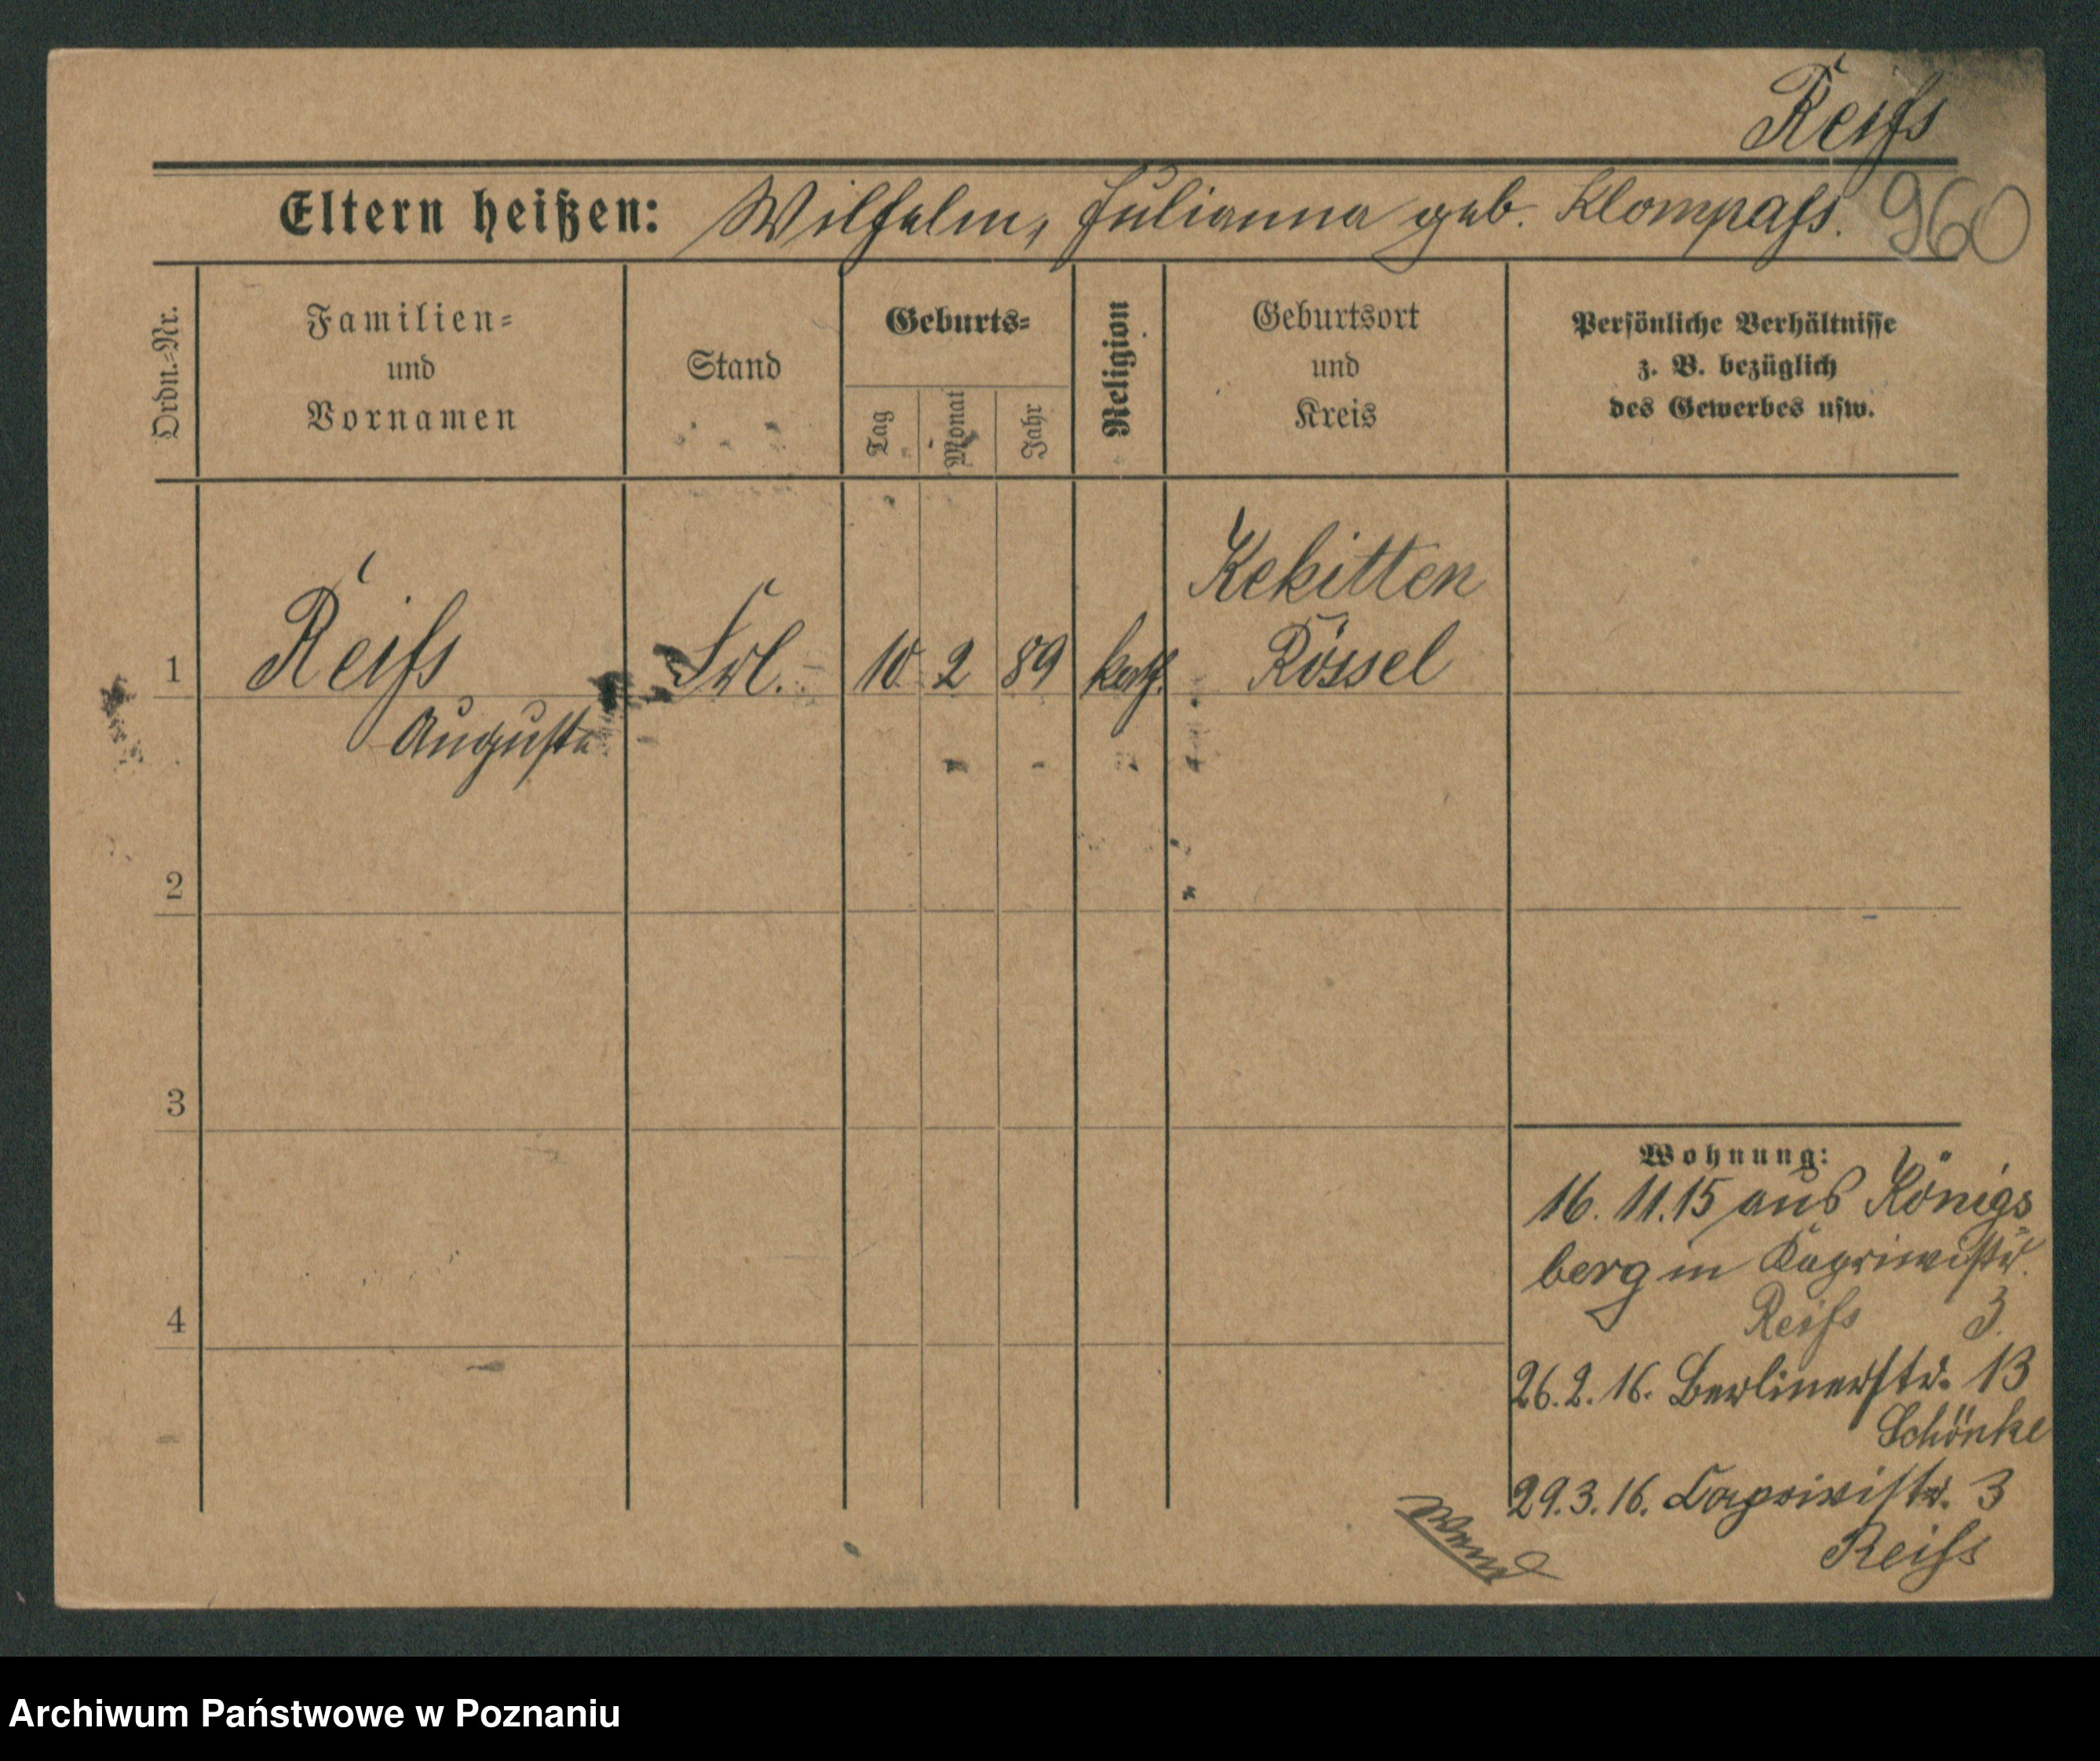 Reiſs
Eltern heißen: Wilhelm, Julianna geb. Klompaſs.
960
Ordn.=Nr.
Familien=
und
Vornamen
Stand
Geburts=
Tag
Monat
Jahr
Religion
Geburtsort
und
Kreis
Persönliche Verhältnisse
z. B. bezüglich
des Gewerbes usw.
1
Reiſs
Auguste
Frl.
10 2 89
kath.
Kekitten
Rössel
2
3
4
Wohnung:
16. 11. 15 aus Königs
berg in Kaprivistr.
Reiſs 3.
26. 2. 16. Berlinerstr. 13
Schönke
29. 3. 16. Caprivistr. 3
Reiſs
Wend
Archiwum Państwowe w Poznaniu